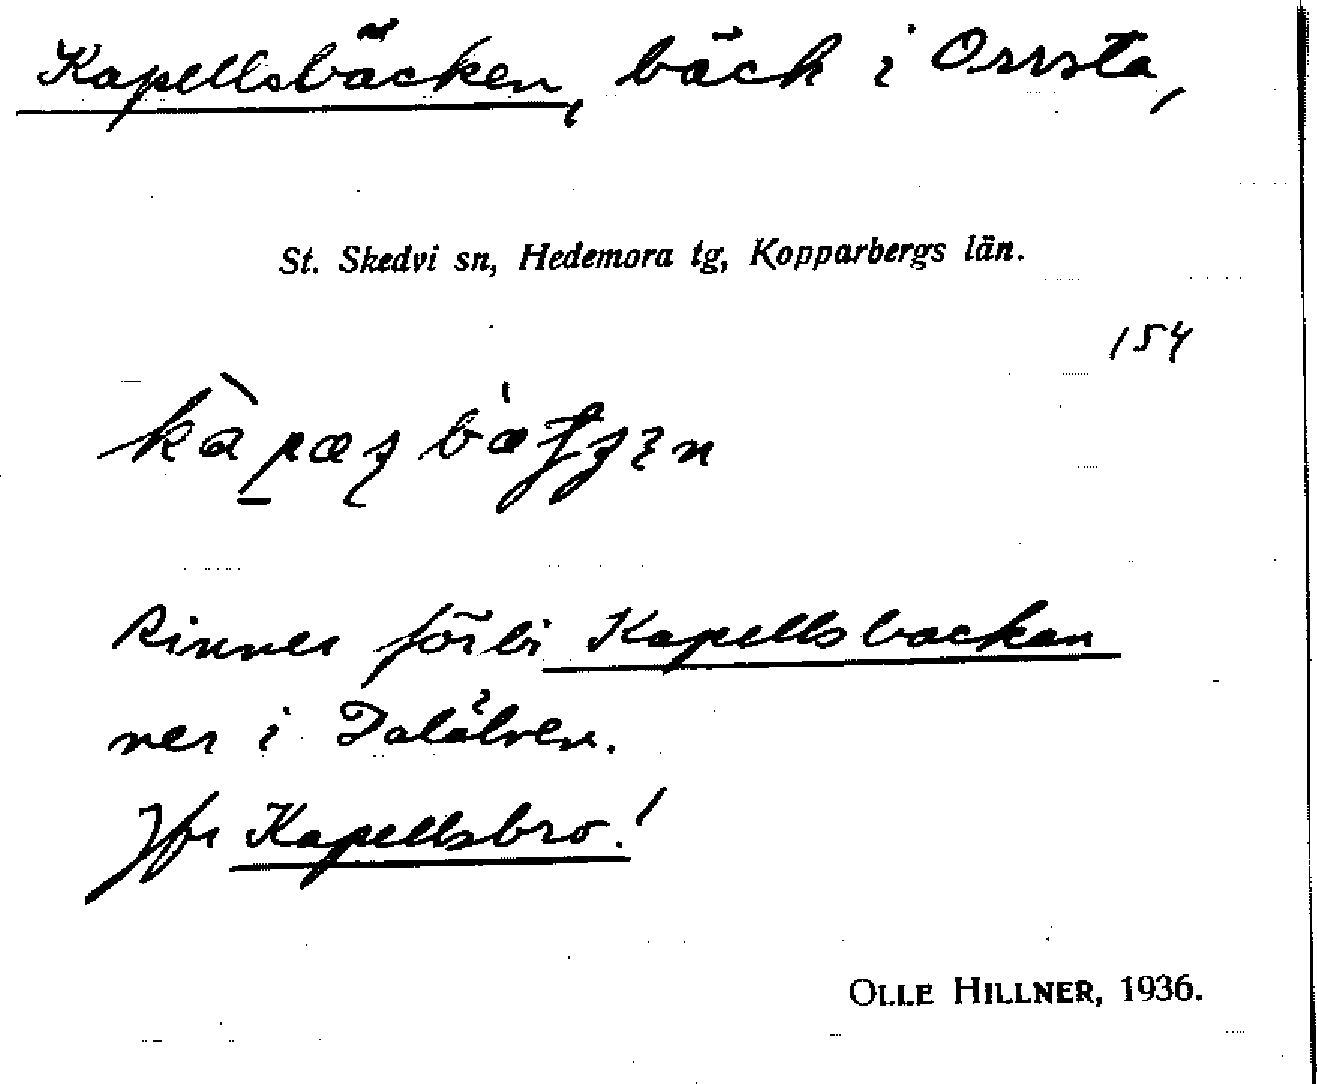 Kapellsbäcken, bäck i Orrsta,
St. Skedvi sn, Hedemora tg, Kopparbergs län.
154
Rinner förbi Kapellsbackan
ner i Dalälven.
Jfr Kapellsbro!
OLLE HILLNER, 1936.